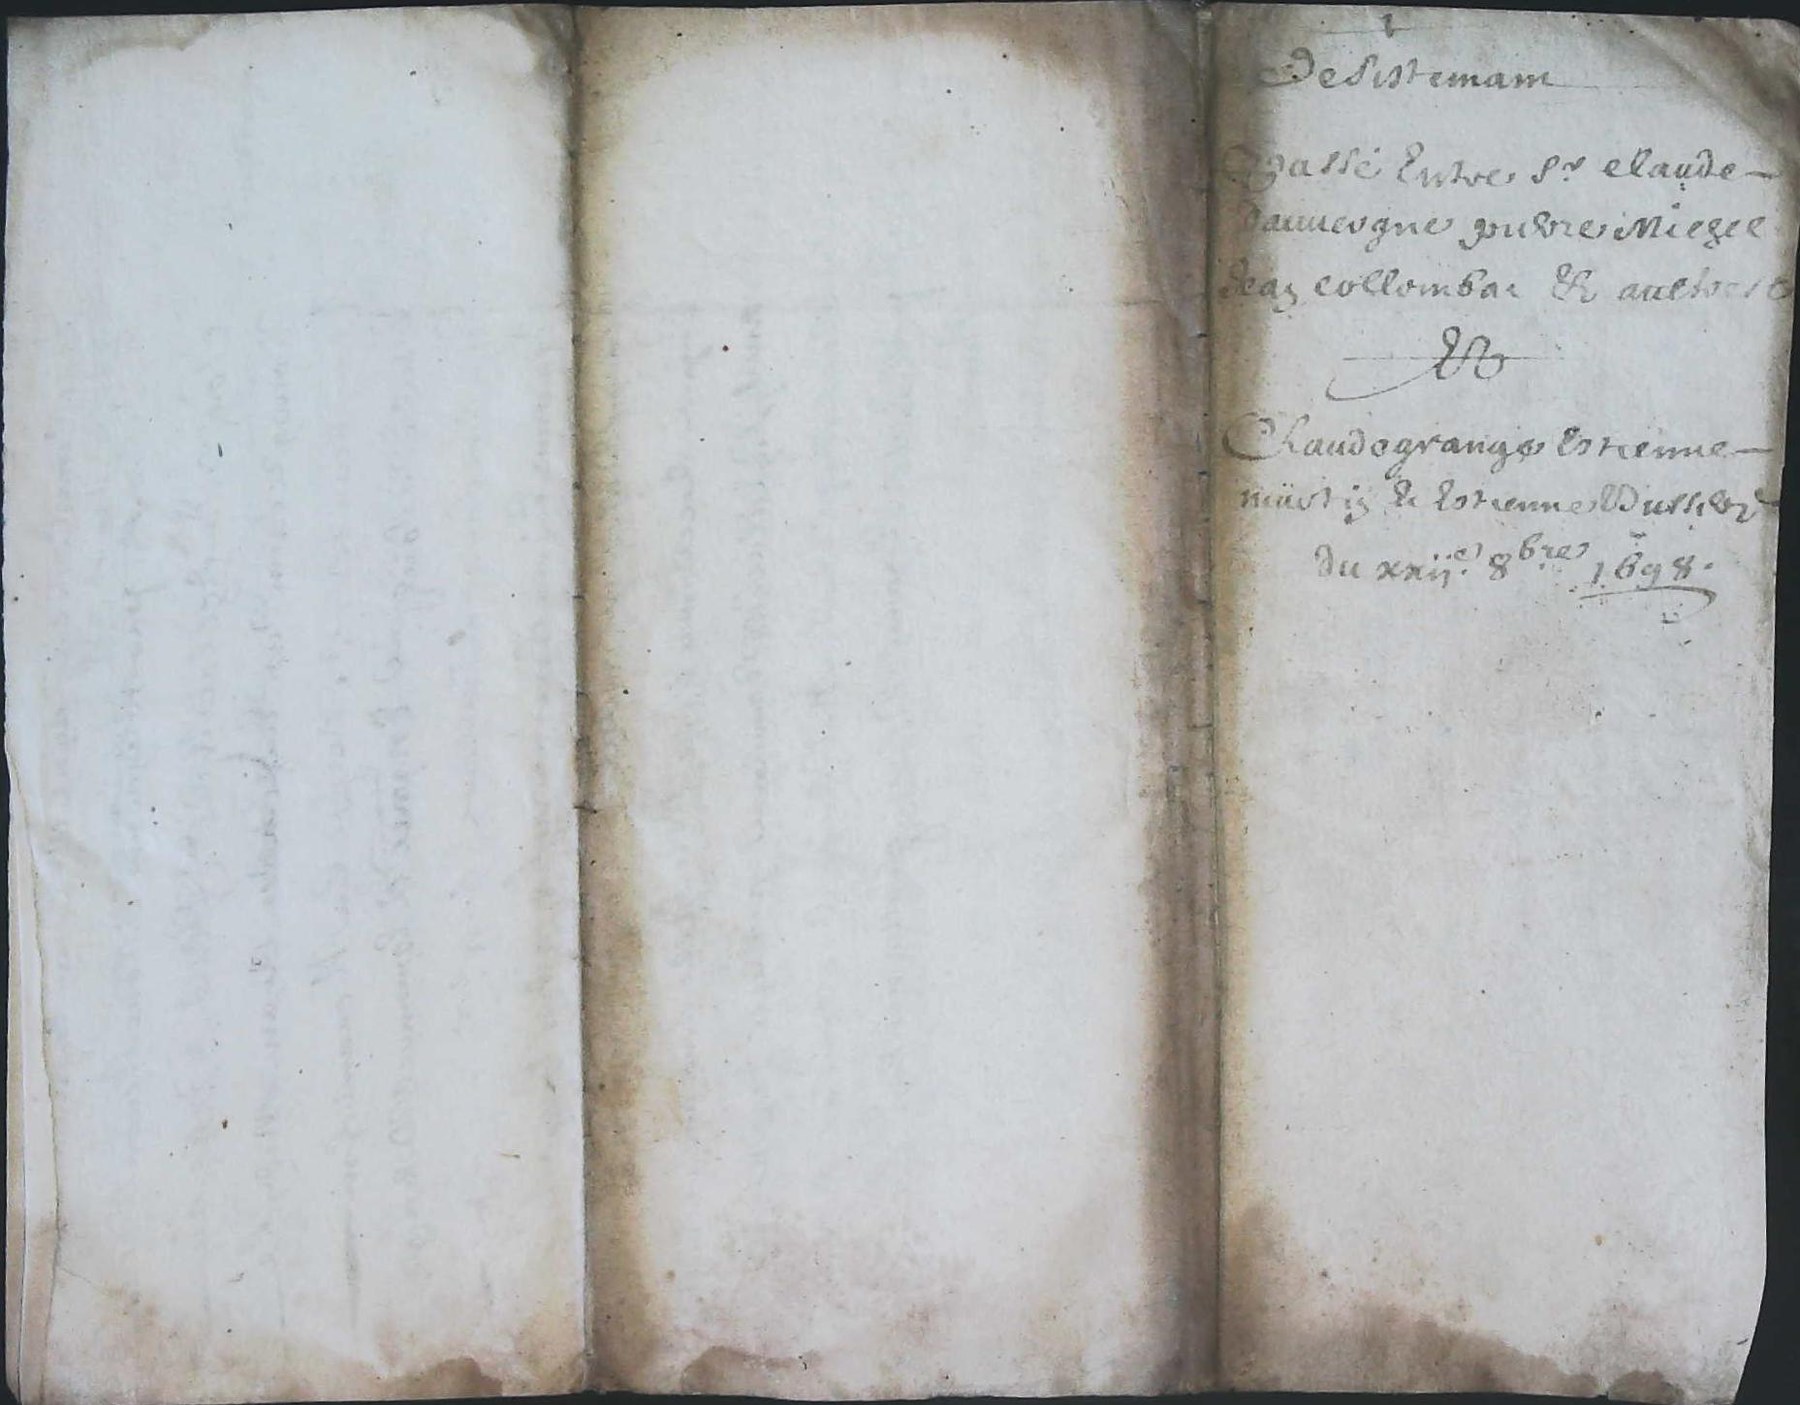 Desistemam
Passé Entre Sr Claude
dauuergne Miegee
Jean collombar & aultres
&
Claude grange Estienne
martin & Estienne Bussie
du xxije 8bre 1698.